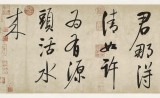 君那得
清如許
為有源
頭活水
来